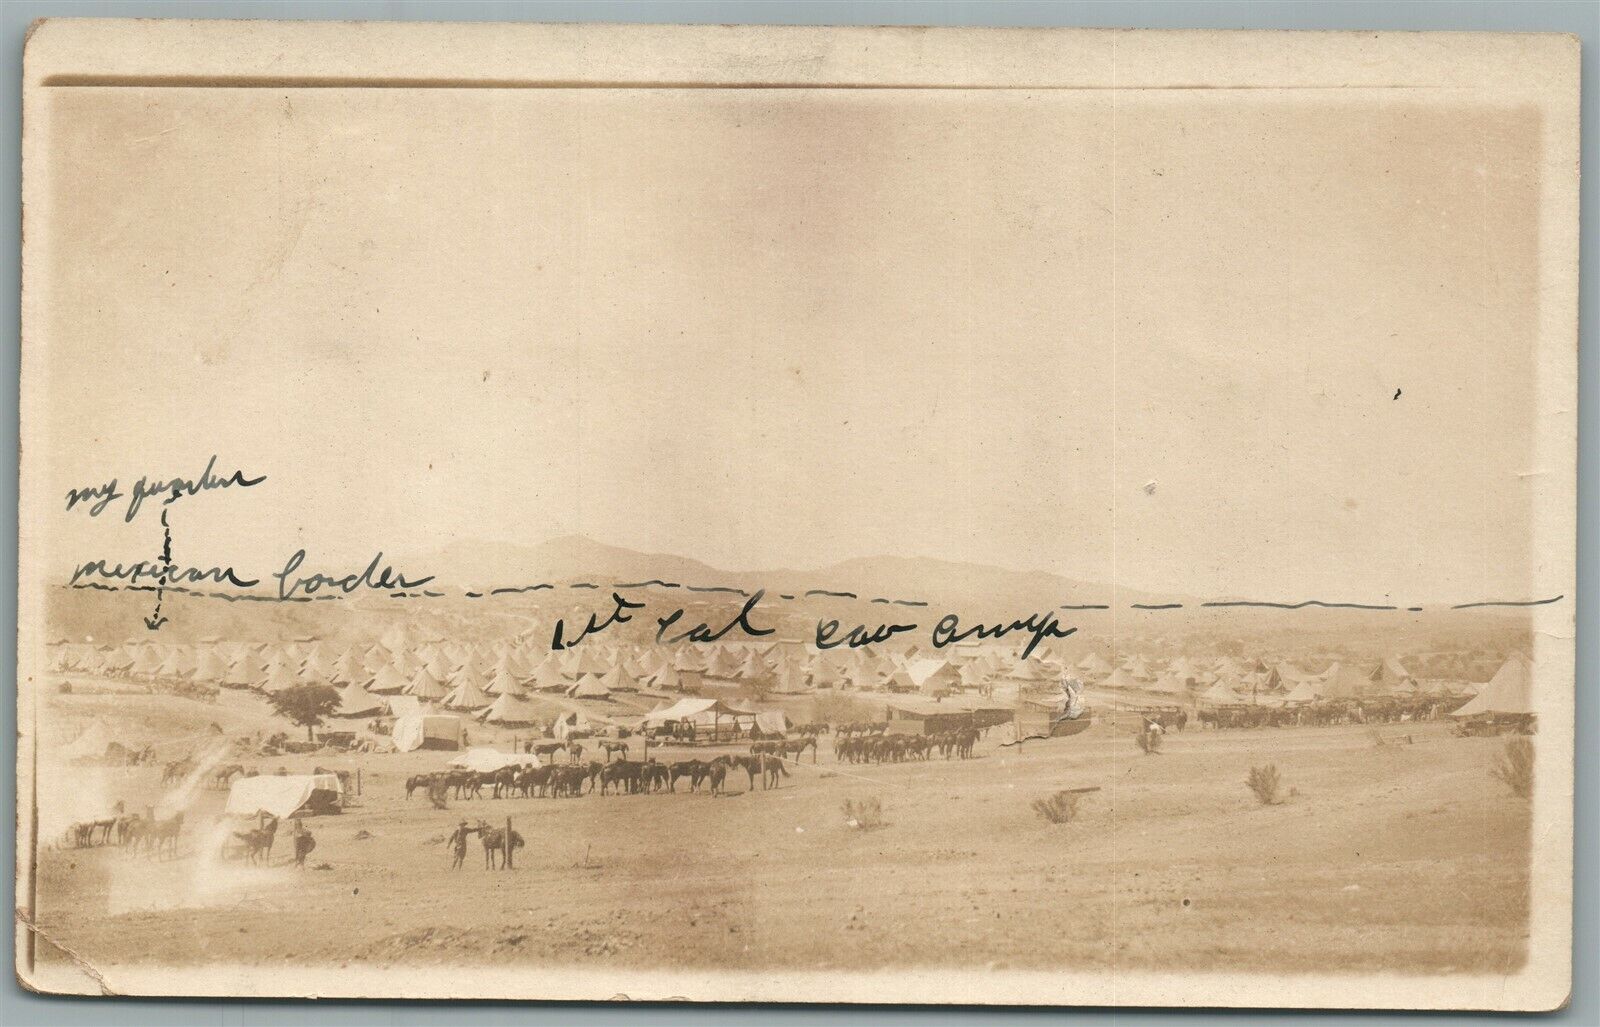 my
mexican border
1st Cal Cav Camp